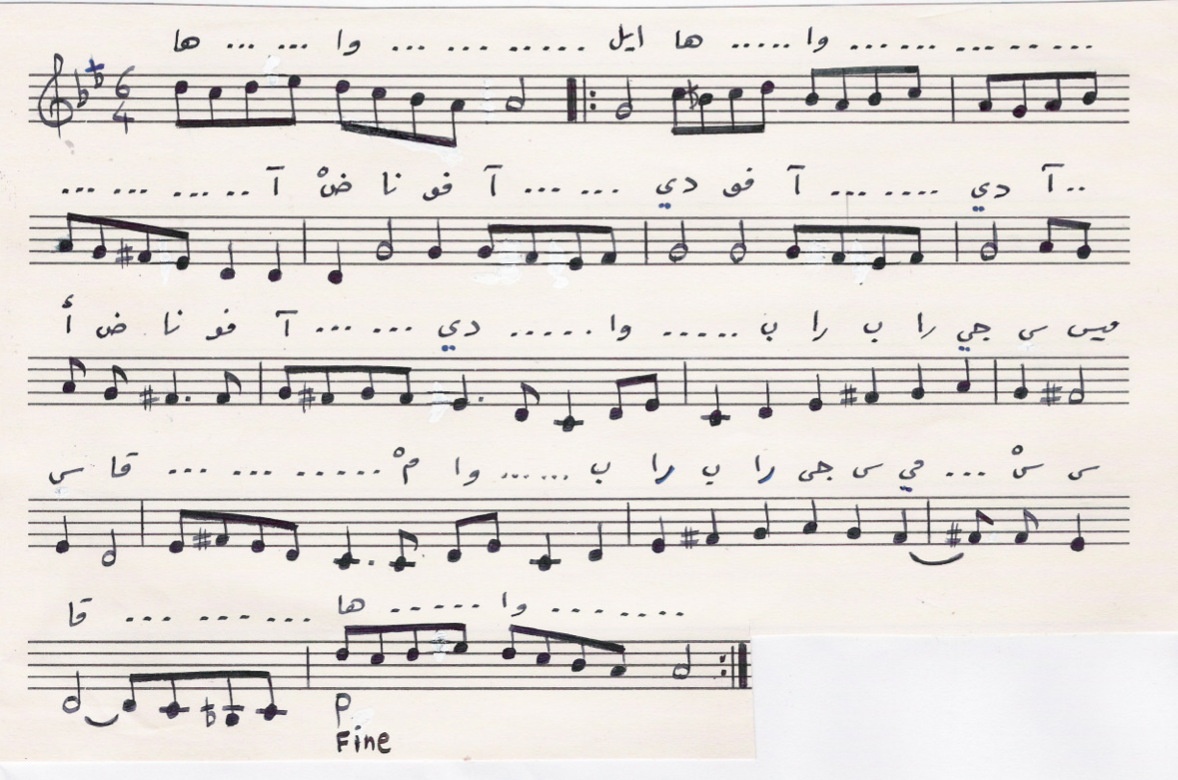 ها ... ... وا ... ... ...... ايل ها ..... وا ... ... ... .. ...
6
4
... ... ... .. آ ضْ نا فو آ ... ... دي فو آ ... .... دي آ ..
أ ض نا فو آ ... ... دي ..... وا ..... ب را ب را جي س ميس
س قا ... ... ...... مْ وا ...... ب را ب را جى س مي ... سْ س
قا ... ... ... ها ..... وا ... ....
P
Fine